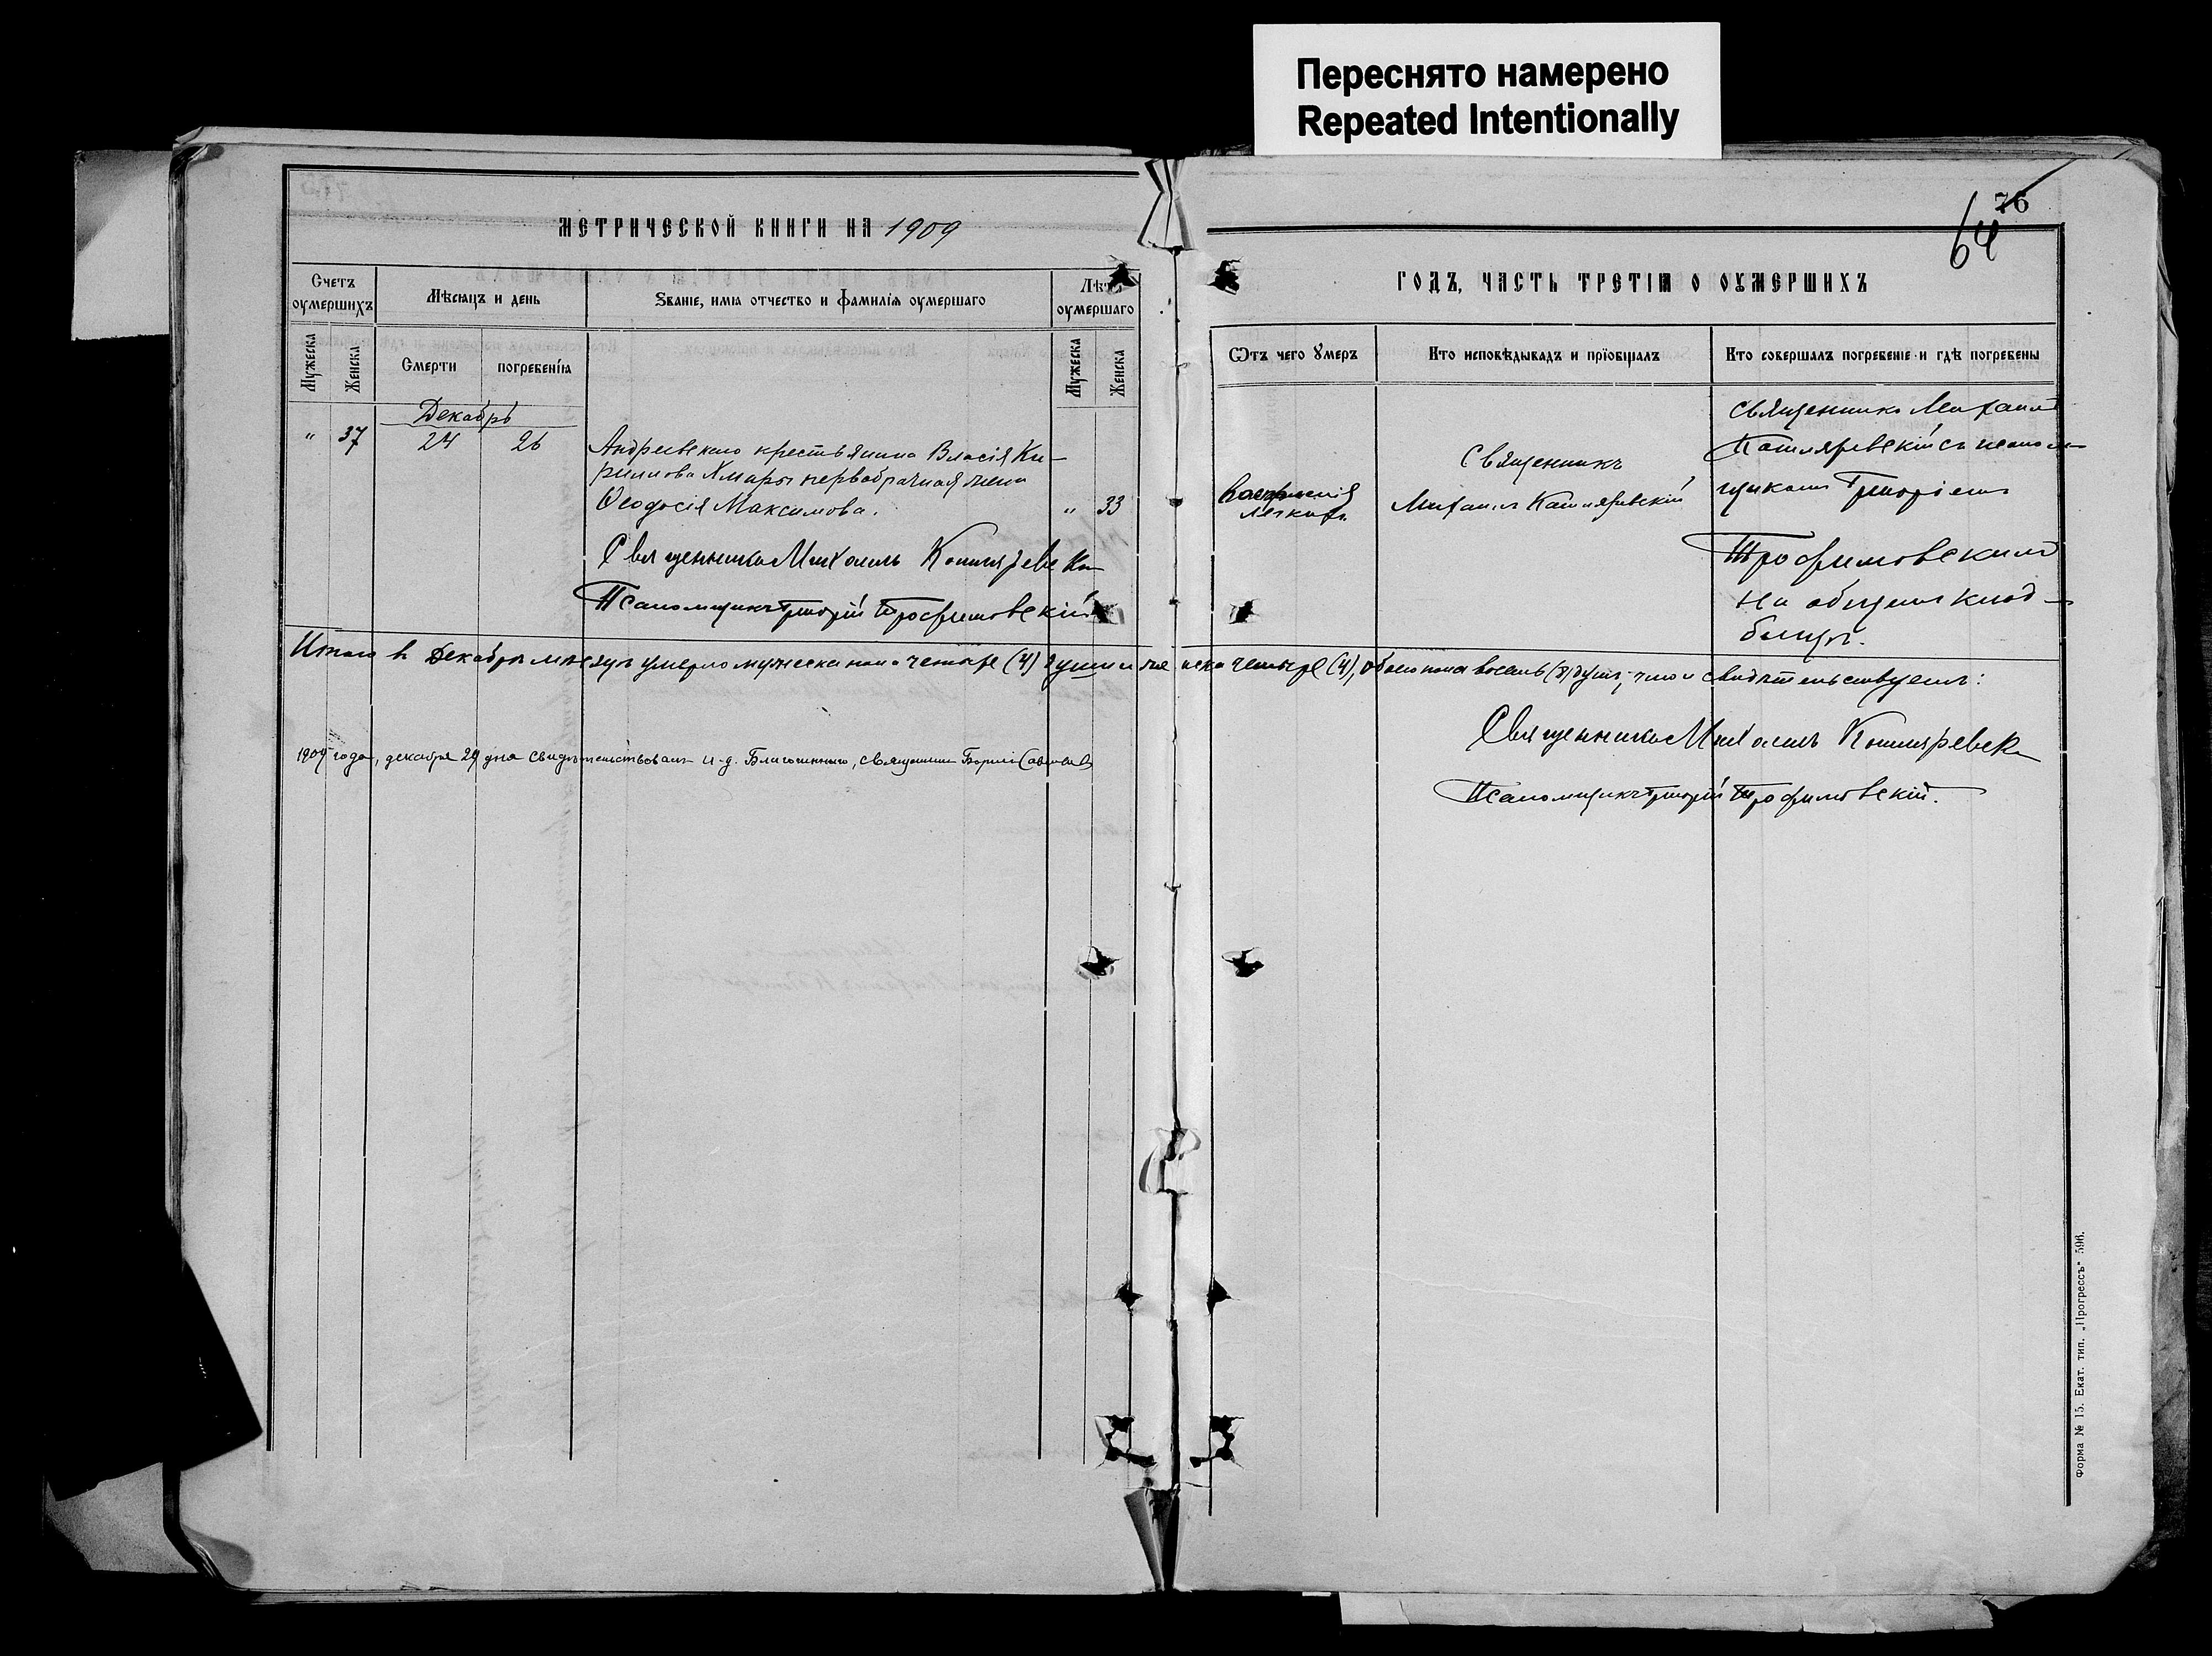 Переснято намерено
Repeated Intentionally
76
64
МЕТРИЧЕСКОЙ КНИГИ НА 1909
ГОДЪ, ЧАСТЬ ТРЕТІѦ О ОУМЕРШИХЪ
Счетъ оумершихъ
Мѣсяцъ и день
Званіе, имѧ отчество и фамилїѧ оумершаго
Лѣта оумершаго
Мужеска
Женска
Смерти
погребенїѧ
Мужеска
Женска
Ѿтъ чего Умеръ
Кто исповѣдывалъ и прїобщалъ
Кто совершалъ погребенїе и гдѣ погребены
Декабрь
" 37 24 26
Андреевскаго крестьянина Власія Ки-
рилова Хмары первобрачная жена
Ѳеодосія Максимова.
" 33
Воспаленія
легкихъ
Священникъ
Михаилъ Котляревскій
Священникъ Михаилъ
Котляревскій съ псалом-
щикомъ Григоріемъ
Трофимовскимъ
на общем клад-
бищѣ.
Священникъ Михаилъ Котляревскі
Псаломщикъ Григорій Трофимовскій
Итого въ Декабрѣ мѣсяцѣ умерло мужеска пола четыре (4) души и женска четыре (4), обоего пола восемь (8) душъ, что и свидѣтельствуемъ:
Священникъ Михаилъ Котляревск
Псаломщикъ Григорій Трофимовскій.
1909 года, декабря 29 дня свидѣтельствовалъ и. д. Благочиннаго, священникъ
Форма № 15. Екат. тип. „Прогрессъ" 596.